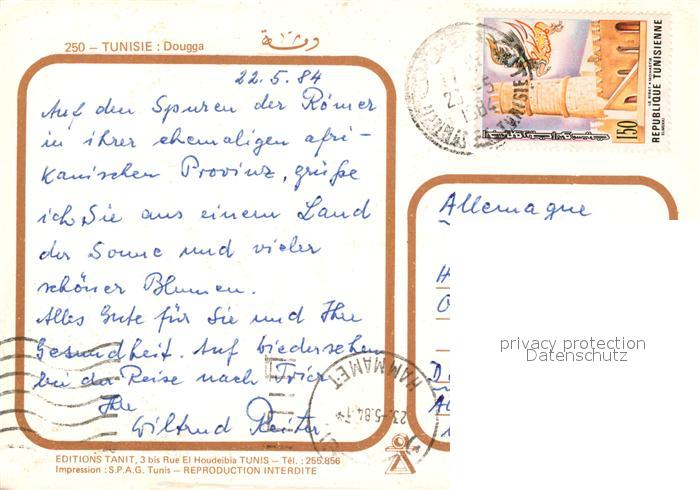 250 — TUNISIE : Dougga دوڨة
22.5.84
Auf den Spuren der Römer
in ihrer ehemaligen afri-
kanischen Provinz, grüße
ich Sie aus einem Land
der Sonne und vieler
schöner Blumen.
Alles Gute für Sie und Ihre
Gesundheit. Auf Wiedersehen
bei der Reise nach Trier.
Ihre
Wiltrud Reiter
EDITIONS TANIT, 3 bis Rue El Houdeibia TUNIS — Tél. : 255.856
Impression : S.P.A.G. Tunis — REPRODUCTION INTERDITE
REPUBLIQUE TUNISIENNE
150
TUNISIE
HAMMAMET
23.-5.84
Allemagne
privacy protection
Datenschutz